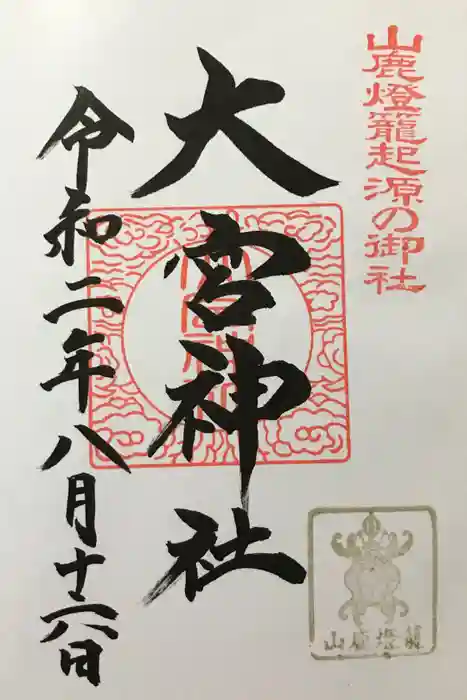 山鹿燈籠起源の御社
大宮神社
令和二年八月十六日
山鹿燈籠